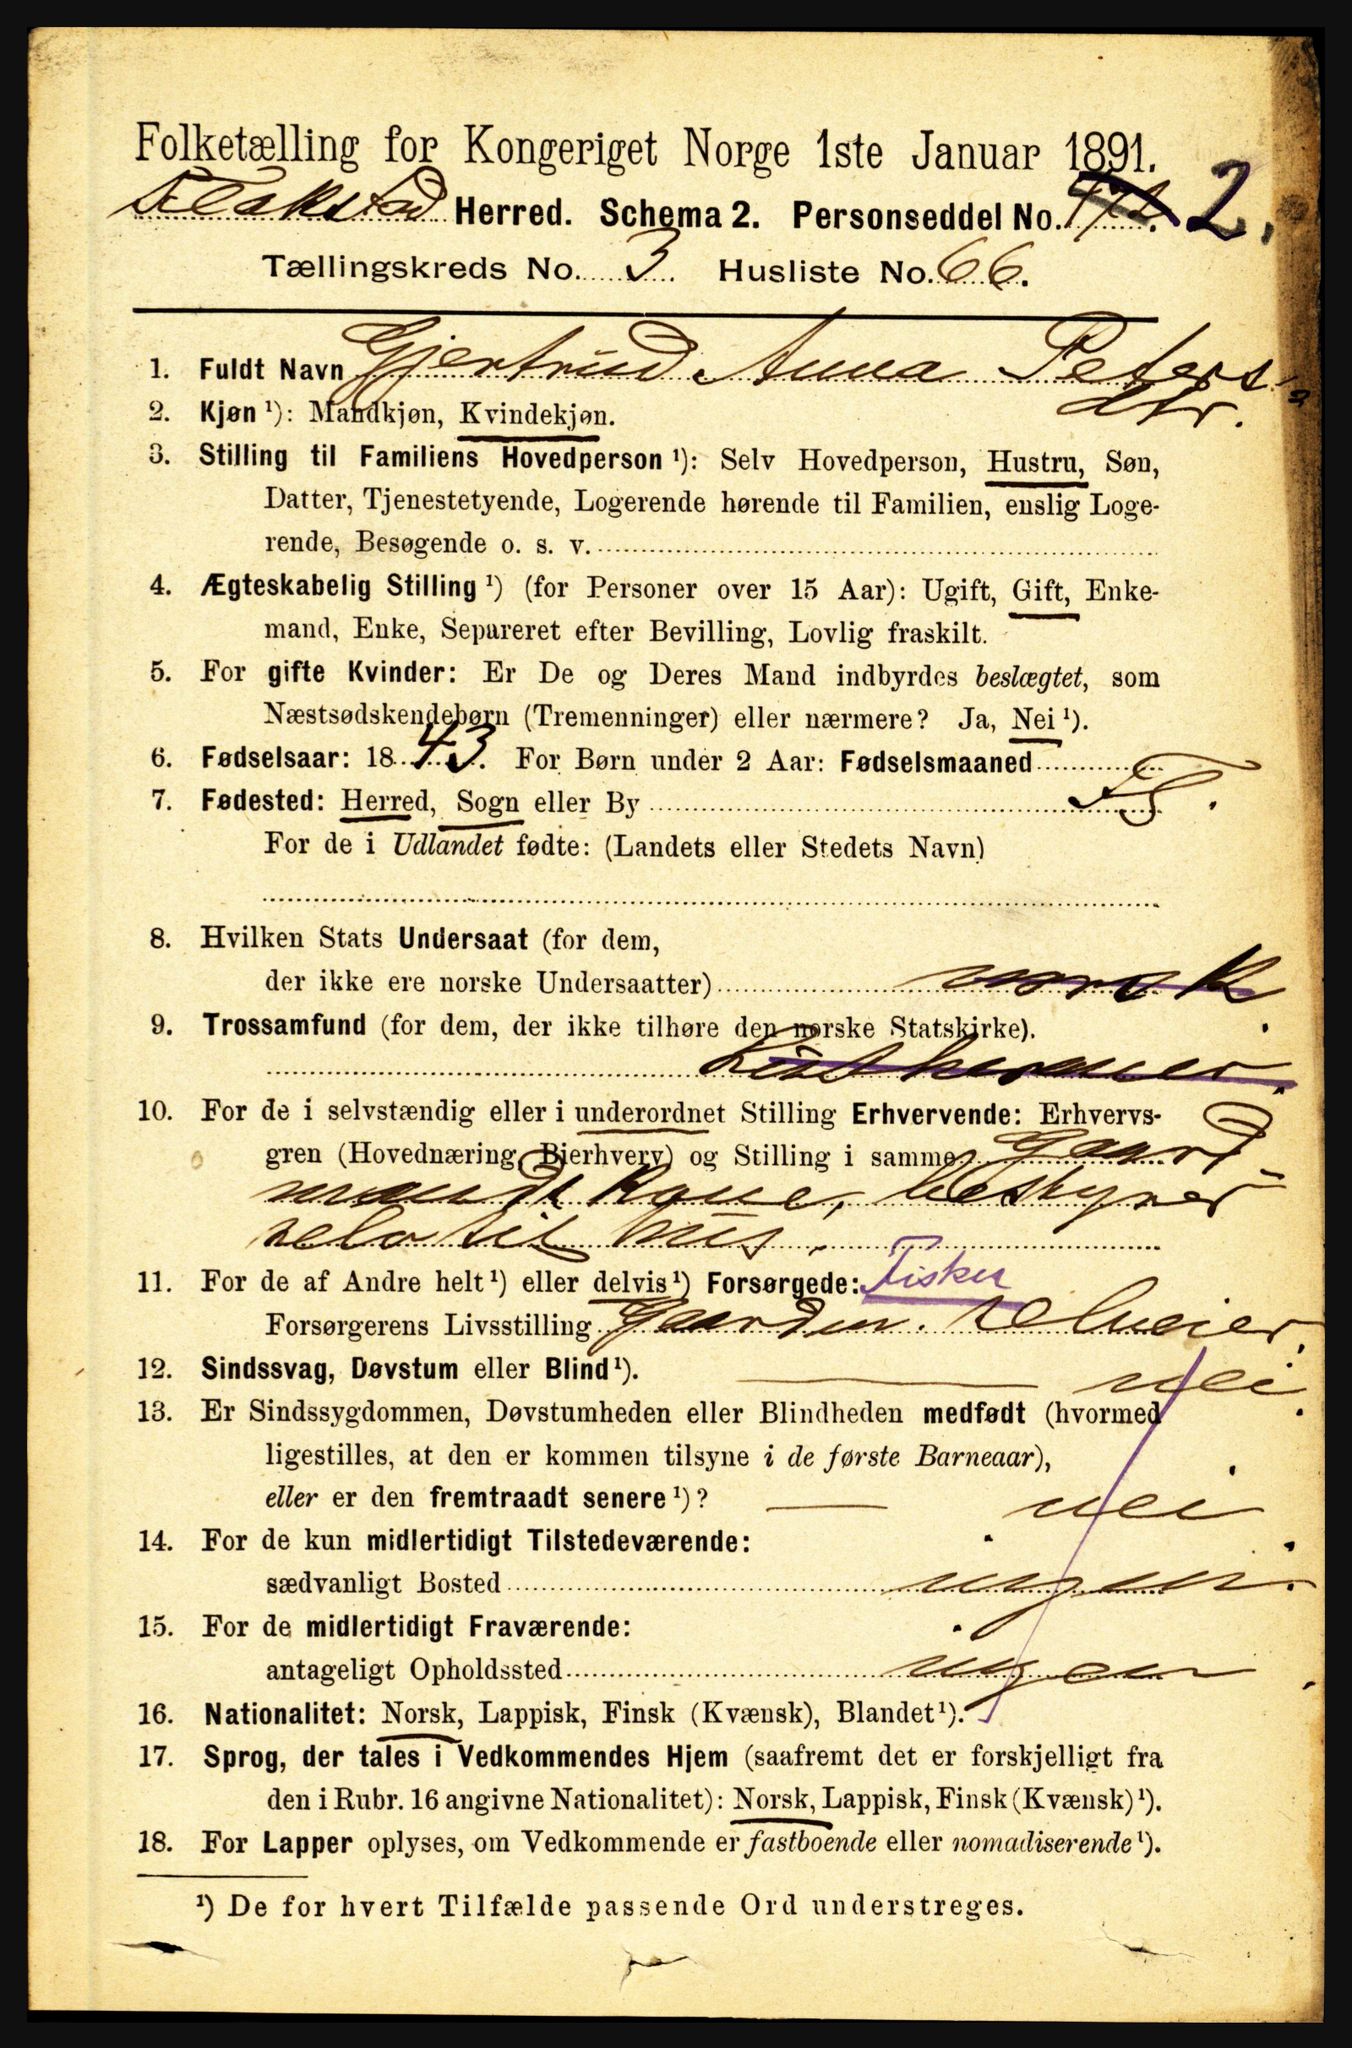 Folketælling for Kongeriget Norge 1ste Januar 1891.
Flakstad Herred. Schema 2. Personseddel No. 2.
Tællingskreds No. 3. Husliste No. 66.
1. Fuldt Navn Gjertrud Anna Peters-
dtr.
2. Kjøn ¹): Mandkjøn, Kvindekjøn.
3. Stilling til Familiens Hovedperson ¹): Selv Hovedperson, Hustru, Søn,
Datter, Tjenestetyende, Logerende hørende til Familien, enslig Loge-
rende, Besøgende o. s. v.
4. Ægteskabelig Stilling ¹) (for Personer over 15 Aar): Ugift, Gift, Enke-
mand, Enke, Separeret efter Bevilling, Lovlig fraskilt.
5. For gifte Kvinder: Er De og Deres Mand indbyrdes beslægtet, som
Næstsødskendebørn (Tremenninger) eller nærmere? Ja, Nei ¹).
6. Fødselsaar: 1843. For Børn under 2 Aar: Fødselsmaaned
7. Fødested: Herred, Sogn eller By
For de i Udlandet fødte: (Landets eller Stedets Navn)
8. Hvilken Stats Undersaat (for dem,
der ikke ere norske Undersaatter) norsk.
9. Trossamfund (for dem, der ikke tilhøre den norske Statskirke).
Lutheraner.
10. For de i selvstændig eller i underordnet Stilling Erhvervende: Erhvervs-
gren (Hovednæring, Bierhverv) og Stilling i samme Gaard-
mands Kone, bestyrer
hus.
11. For de af Andre helt ¹) eller delvis ¹) Forsørgede: Fisker
Forsørgerens Livsstilling Gaardm.
12. Sindssvag, Døvstum eller Blind ¹). nei.
13. Er Sindssygdommen, Døvstumheden eller Blindheden medfødt (hvormed
ligestilles, at den er kommen tilsyne i de første Barneaar),
eller er den fremtraadt senere ¹)? nei
14. For de kun midlertidigt Tilstedeværende:
sædvanligt Bosted ingen.
15. For de midlertidigt Fraværende:
antageligt Opholdssted ingen.
16. Nationalitet: Norsk, Lappisk, Finsk (Kvænsk), Blandet ¹).
17. Sprog, der tales i Vedkommendes Hjem (saafremt det er forskjelligt fra
den i Rubr. 16 angivne Nationalitet): Norsk, Lappisk, Finsk (Kvænsk) ¹).
18. For Lapper oplyses, om Vedkommende er fastboende eller nomadiserende ¹).
¹) De for hvert Tilfælde passende Ord understreges.